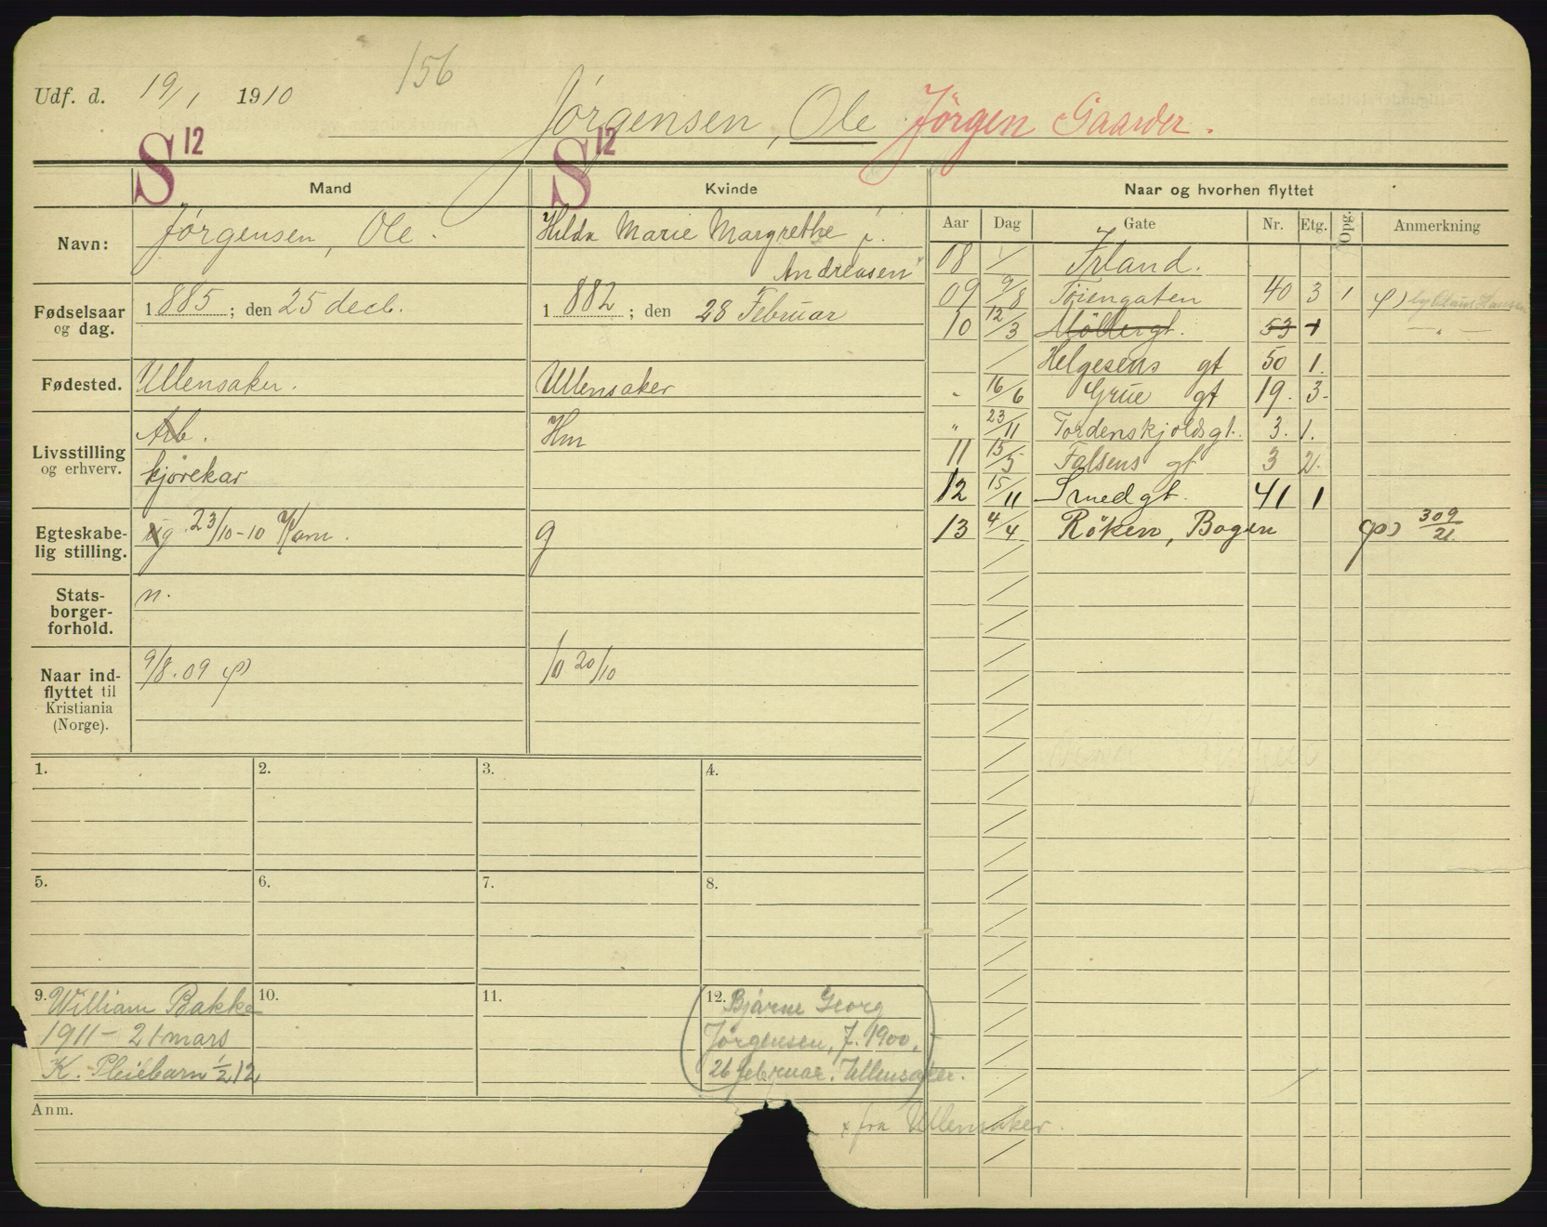 156
Udf. d. 19/1 1910
Jørgensen, Ole Jörgen Gaarder.
S 12
S 12
Mand
Kvinde
Naar og hvorhen flyttet
Navn:
Jørgensen, Ole.
Hilda Marie Margrethe f.
Andreasen
Fødselsaar
og dag.
1885; den 25 decb.
1882; den 28 Februar
Fødested.
Ullensaker.
Ullensaker
Livsstilling
og erhverv.
Arb.
kjørekar
Hm
Egteskabe-
lig stilling.
ug 23/10-10
g
Stats-
borger-
forhold.
n.
Naar ind-
flyttet til
Kristiania
(Norge).
9/8.09
20/10
Aar Dag Gate Nr. Etg. Opg. Anmerkning
08 / Irland.
09 9/8 Tøiengaten 40 3 1
10 12/3 Möllergt. 53 1 — " —
/ Helgesens gt 50 1.
" 16/6 Grüe gt 19. 3.
" 23/11 Tordenskjoldsgt. 3. 1.
11 15/5 Falsens gt 3 2.
12 15/11 Smedgt. 41 1
13 4/4 Röken, Bogen 309/21
1.
2.
3.
4.
5.
6.
7.
8.
9. William Bakke
1911 – 21 mars
K. Pleiebarn 1/2 12
10.
11.
12. Bjarne Georg
Jørgensen, f. 1900,
26 februar. Ullensaker.
Anm.
x fra Ullensaker.